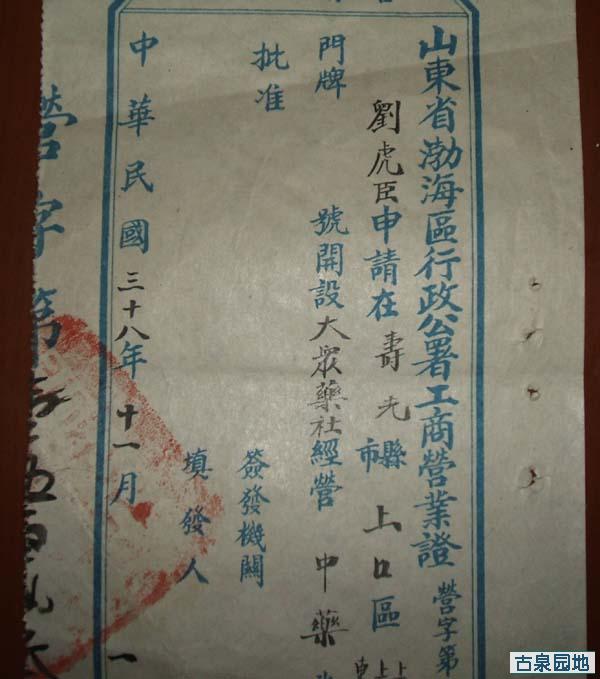 山東省渤海區行政公署工商營業證
營字第
劉虎臣申請在壽光縣市上口區
門牌 號開設大衆藥社經營中藥
批准 簽發機關
填發人
中華民國三十八年十一月 一
營字第
古泉园地